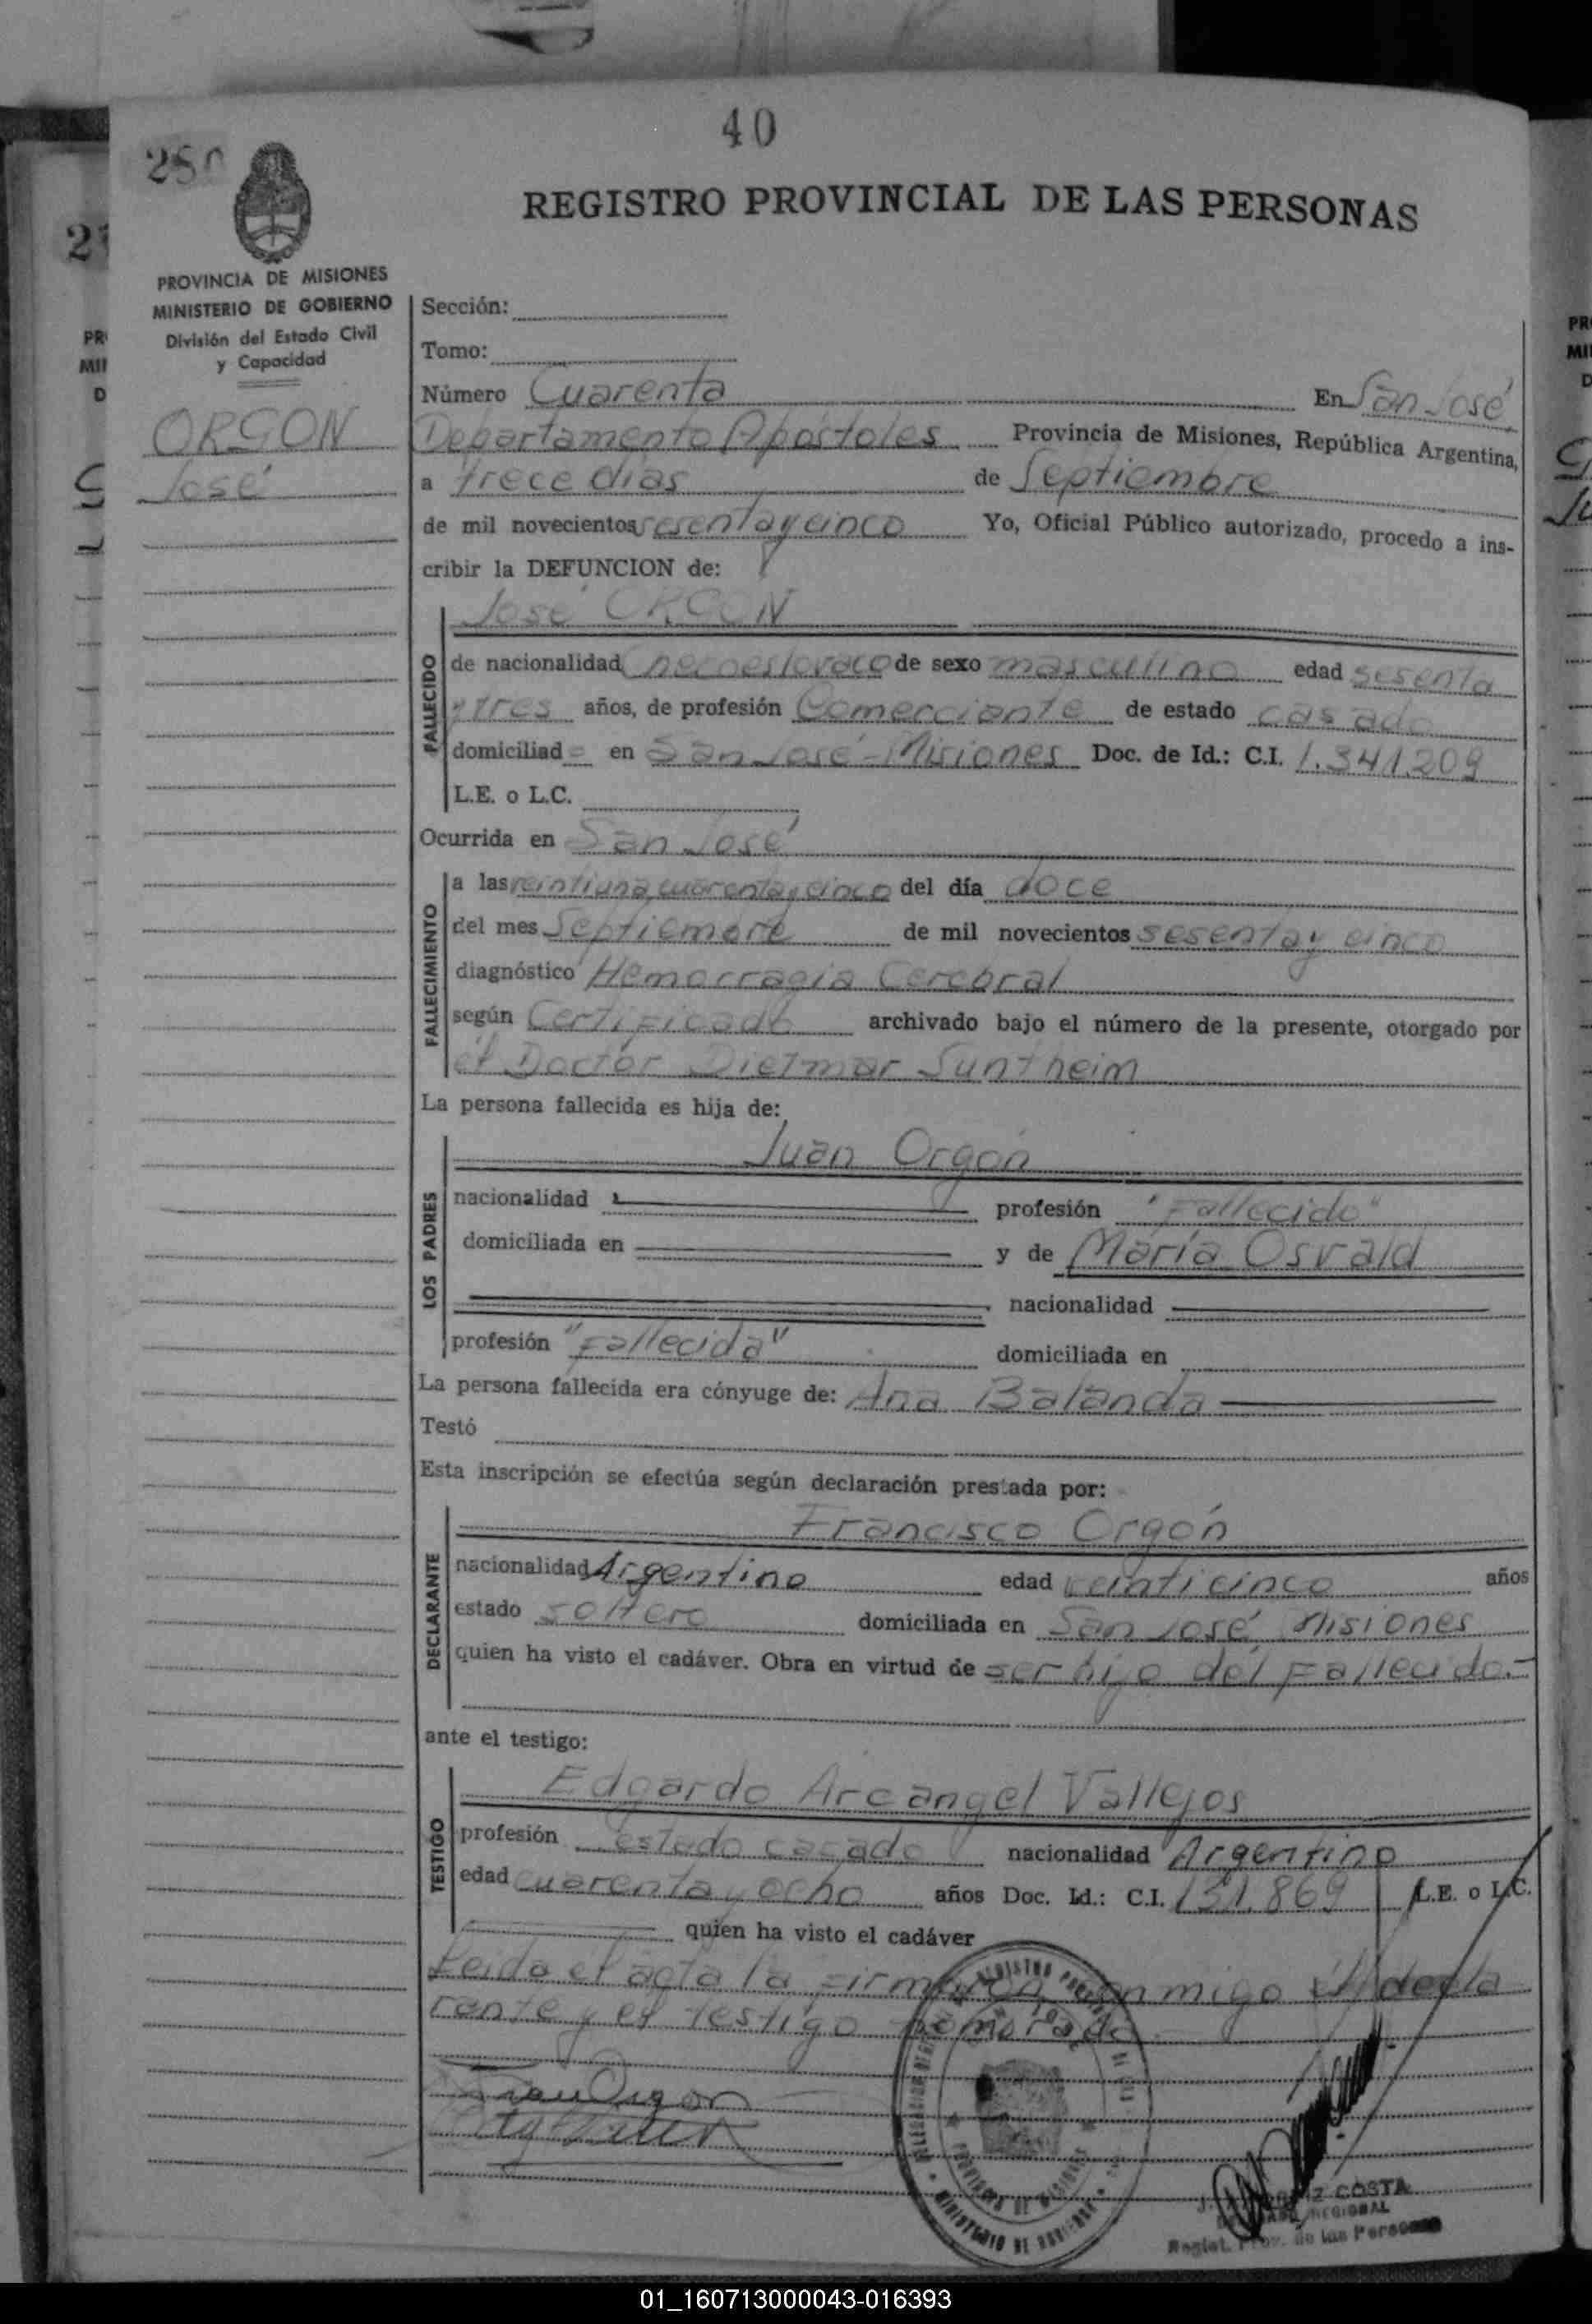 40
280
REGISTRO PROVINCIAL DE LAS PERSONAS
PROVINCIA DE MISIONES
MINISTERIO DE GOBIERNO
División del Estado Civil
y Capacidad
ORGON
José
Sección:
Tomo:
Número Cuarenta En San José
Departamento Apóstoles Provincia de Misiones, República Argentina,
a trece dias de Septiembre
de mil novecientos sesenta y cinco Yo, Oficial Público autorizado, procedo a ins-
cribir la DEFUNCION de:
José ORGON
FALLECIDO
de nacionalidad Checoeslovaco de sexo masculino edad sesenta
y tres años, de profesión Comerciante de estado casado
domiciliad o en San José - Misiones Doc. de Id.: C.I. 1.341.209
L.E. o L.C.
Ocurrida en San José
FALLECIMIENTO
a las veintiuna cuarenta y cinco del día doce
del mes Septiembre de mil novecientos sesenta y cinco
diagnóstico Hemorragia Cerebral
según Certificado archivado bajo el número de la presente, otorgado por
el Doctor Dietmar Suntheim
La persona fallecida es hija de:
LOS PADRES
Juan Orgón
nacionalidad profesión "Fallecido"
domiciliada en y de María Osvald
nacionalidad
profesión "Fallecida" domiciliada en
La persona fallecida era cónyuge de: Ana Balanda
Testó
Esta inscripción se efectúa según declaración prestada por:
DECLARANTE
Francisco Orgón
nacionalidad Argentino edad veinticinco años
estado soltero domiciliada en San José, Misiones
quien ha visto el cadáver. Obra en virtud de ser hijo del Fallecido.-
ante el testigo:
TESTIGO
Edgardo Arcangel Vallejos
profesión estado casado nacionalidad Argentino
edad cuarenta y ocho años Doc. Id.: C.I. 151.869 L.E. o L.C.
quien ha visto el cadáver
Leida el acta la firmaron conmigo el decla
rante y el testigo nomorado
COSTA
REGIONAL
Regist. Prov. de las Personas
01_160713000043-016393